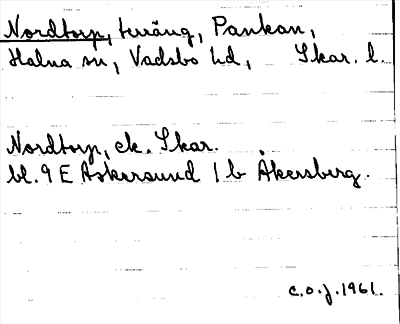 Nordtorp, terräng, Pankan,
Halna sn, Vadsbo hd, Skar. l.
Nordtorp, ek. Skar.
bl. 9 E Askersund 1 b Åkersberg.
C.O.J. 1961.